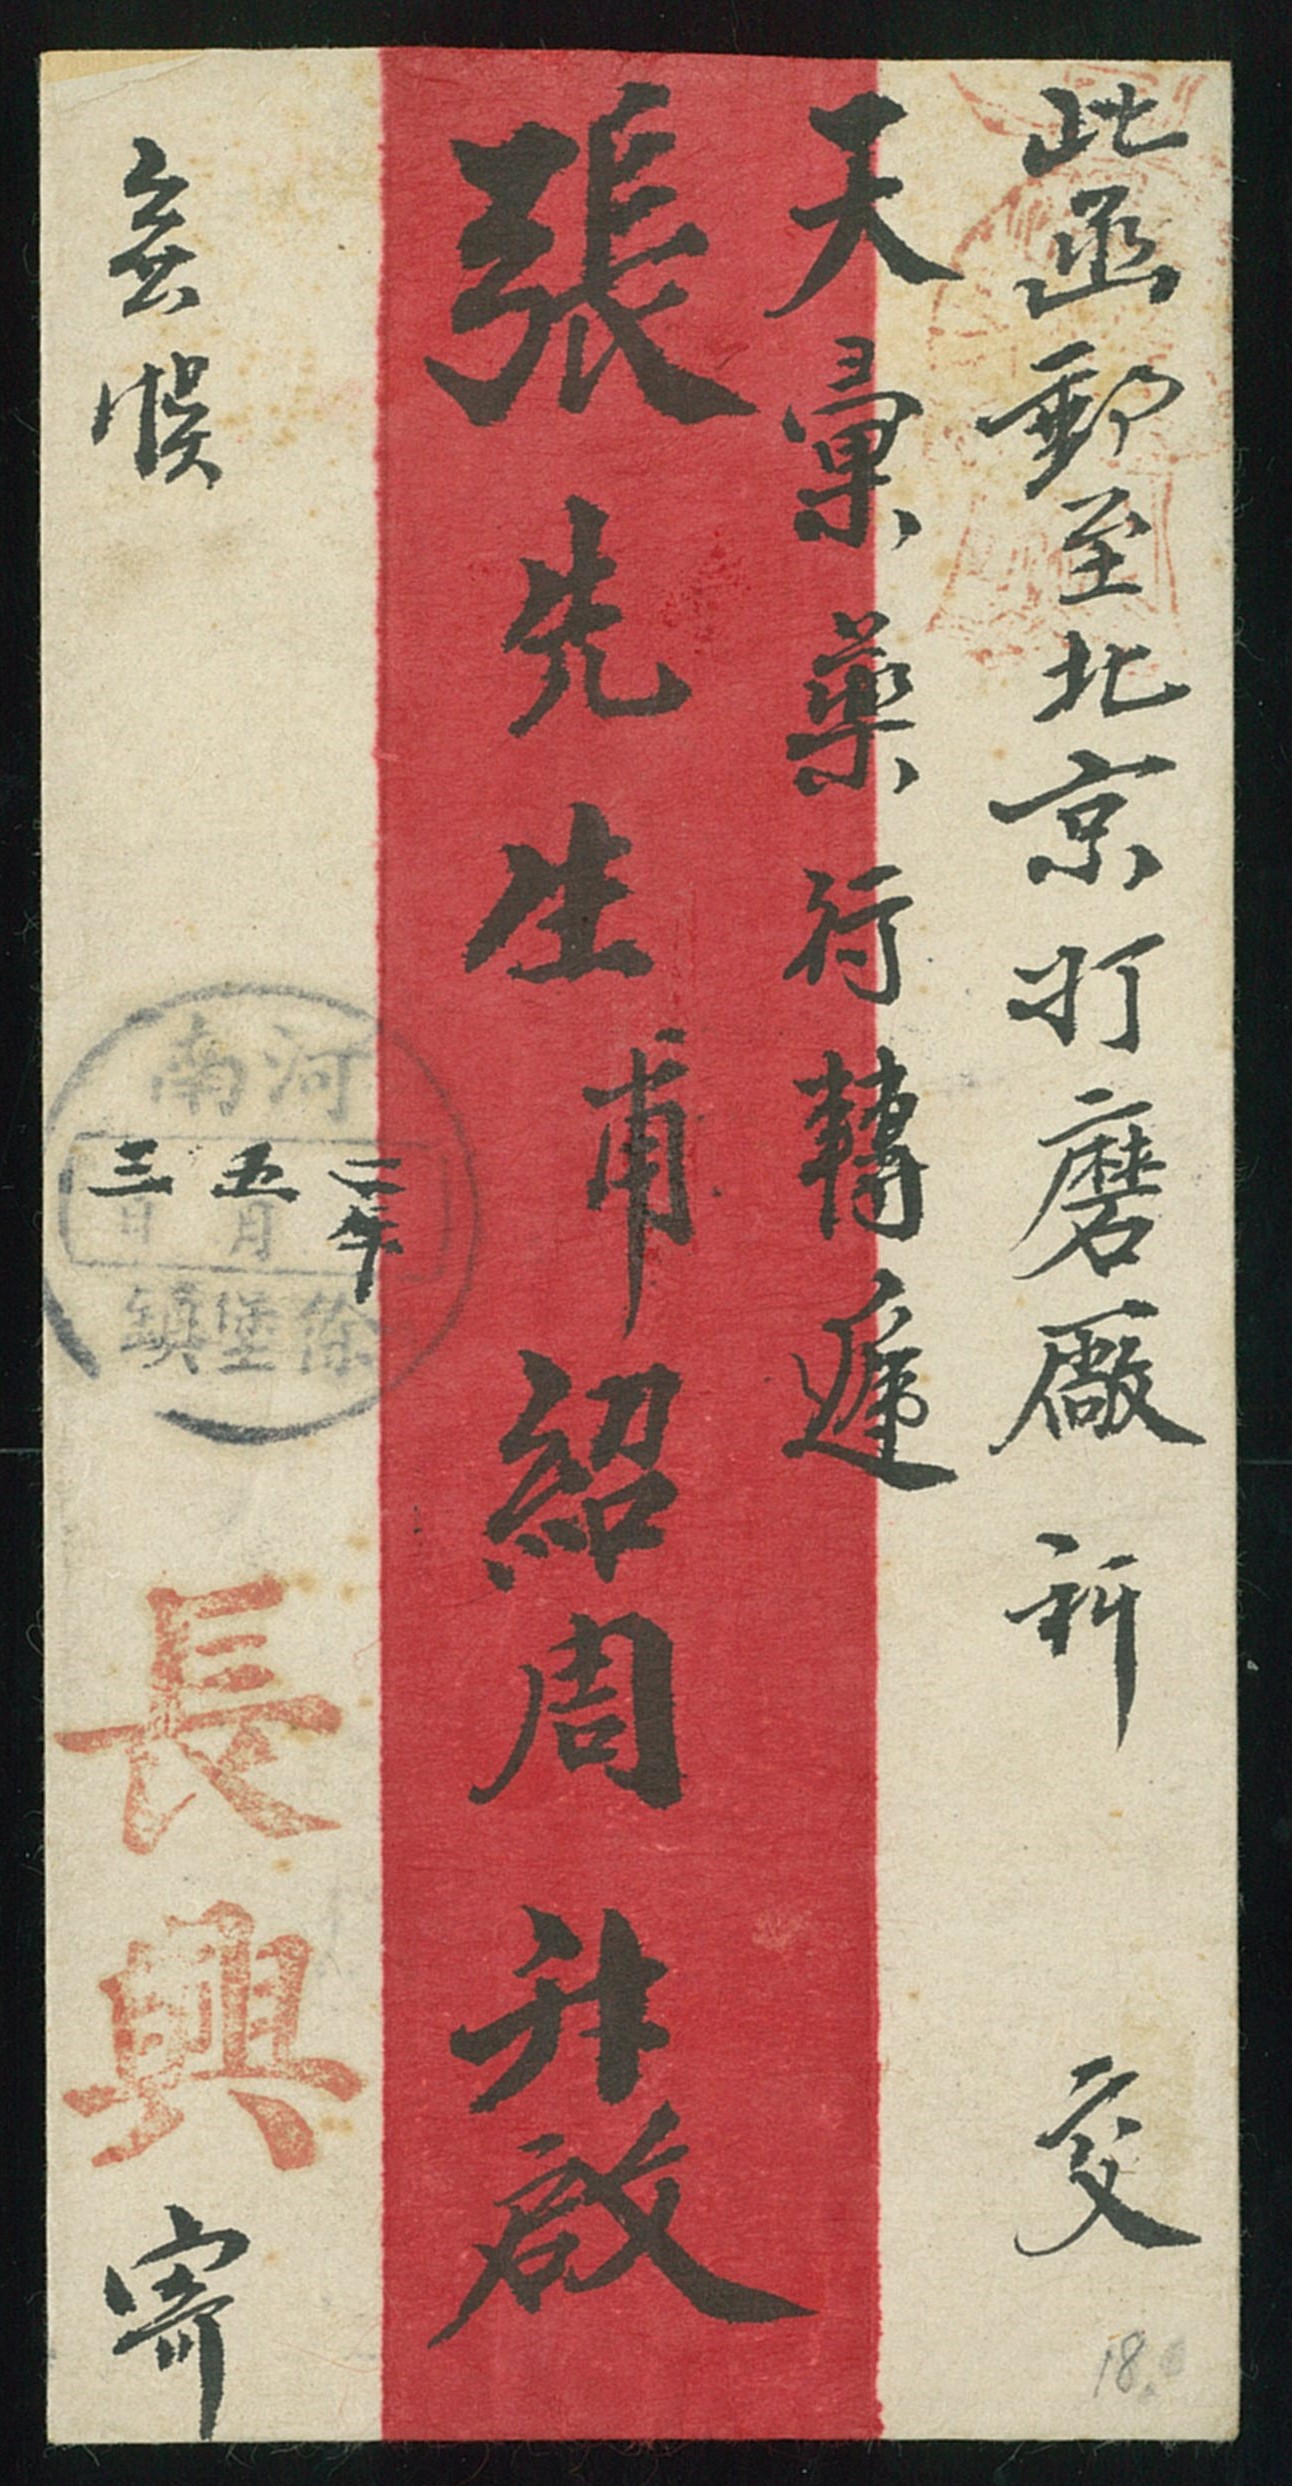 此函郵至北京打磨廠祈 交
天彙藥行轉遞
張先生甫紹周升啟
長興 寄
河南
二年 五月 三日
徐堡鎮
18.